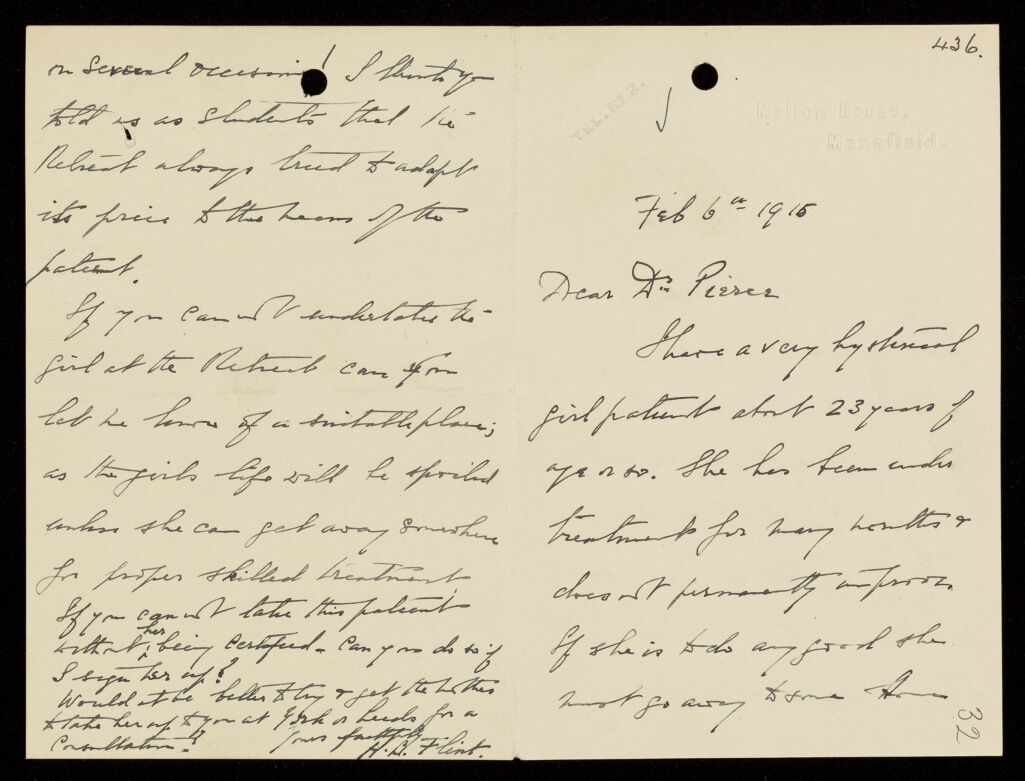 436.
TEL. Nº 2.
Melton House,
Mansfield.
Feb 6th 1915
Dear Dr Pierce
I have a very hysterical
girl patient about 23 years of
age or so. She has been under
treatment for many months &
does not permanently improve.
If she is to do any good she
must go away to some Home
32
on several occasions! I think you
told us as students that the
Retreat always tried to adapt
its price to the means of the
patient.
If you cannot undertake the
girl at the Retreat can you
let me know of a suitable place;
as the girls life will be spoiled
unless she can get away somewhere
for proper skilled treatment
If you cannot take this patient
without her being certified – can you do so if
I sign her up?
Would it be better to try & get the mother
to take her up to you at York or Leeds for a
Consultation?
Yours faithfully
H. B. Flint.